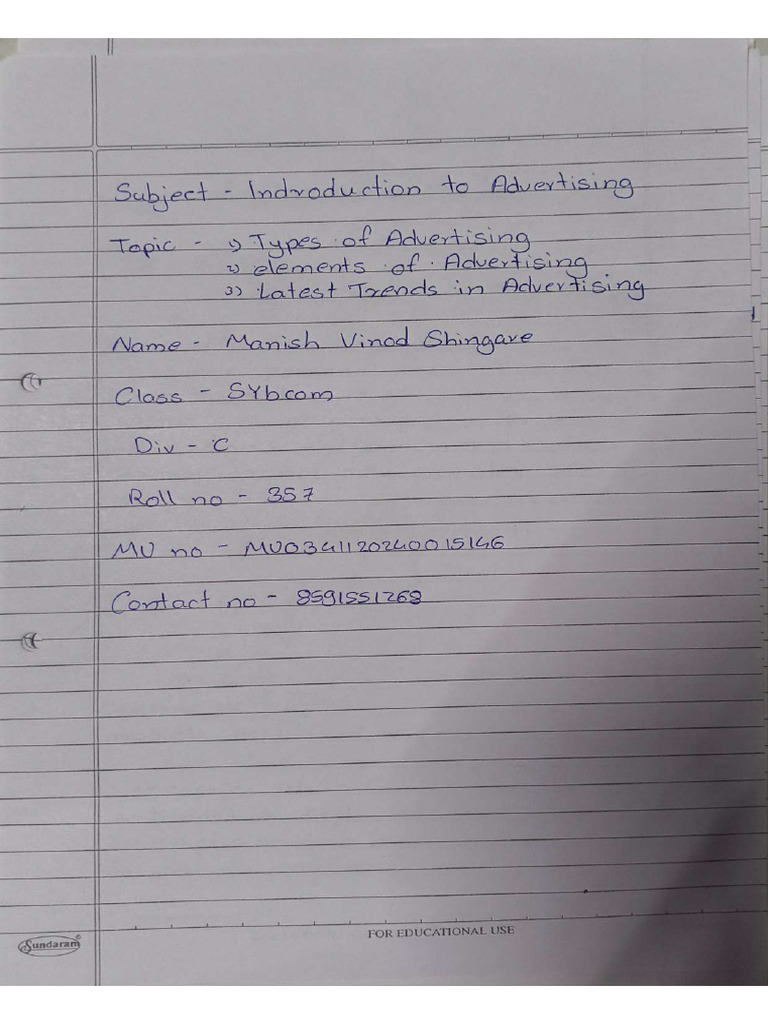 Subject - Indroduction to Advertising
Topic - 1) Types of Advertising
2) elements of Advertising
3) Latest Trends in Advertising
Name - Manish Vinod Shingare
Class - SYbcom
Div - C
Roll no - 357
MU no - MU0341120240015146
Contact no - 8591551268
Sundaram
FOR EDUCATIONAL USE